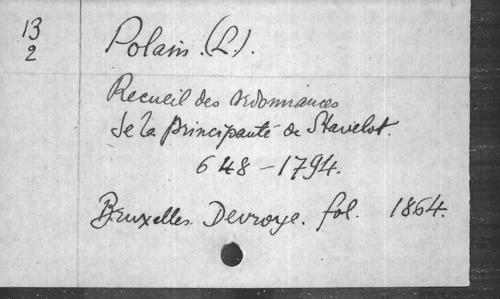 13
2
Polain. (L.).
Recueil des ordonnances
de la principauté de Stavelot.
648-1794.
Bruxelles. Devroye. fol. 1864.